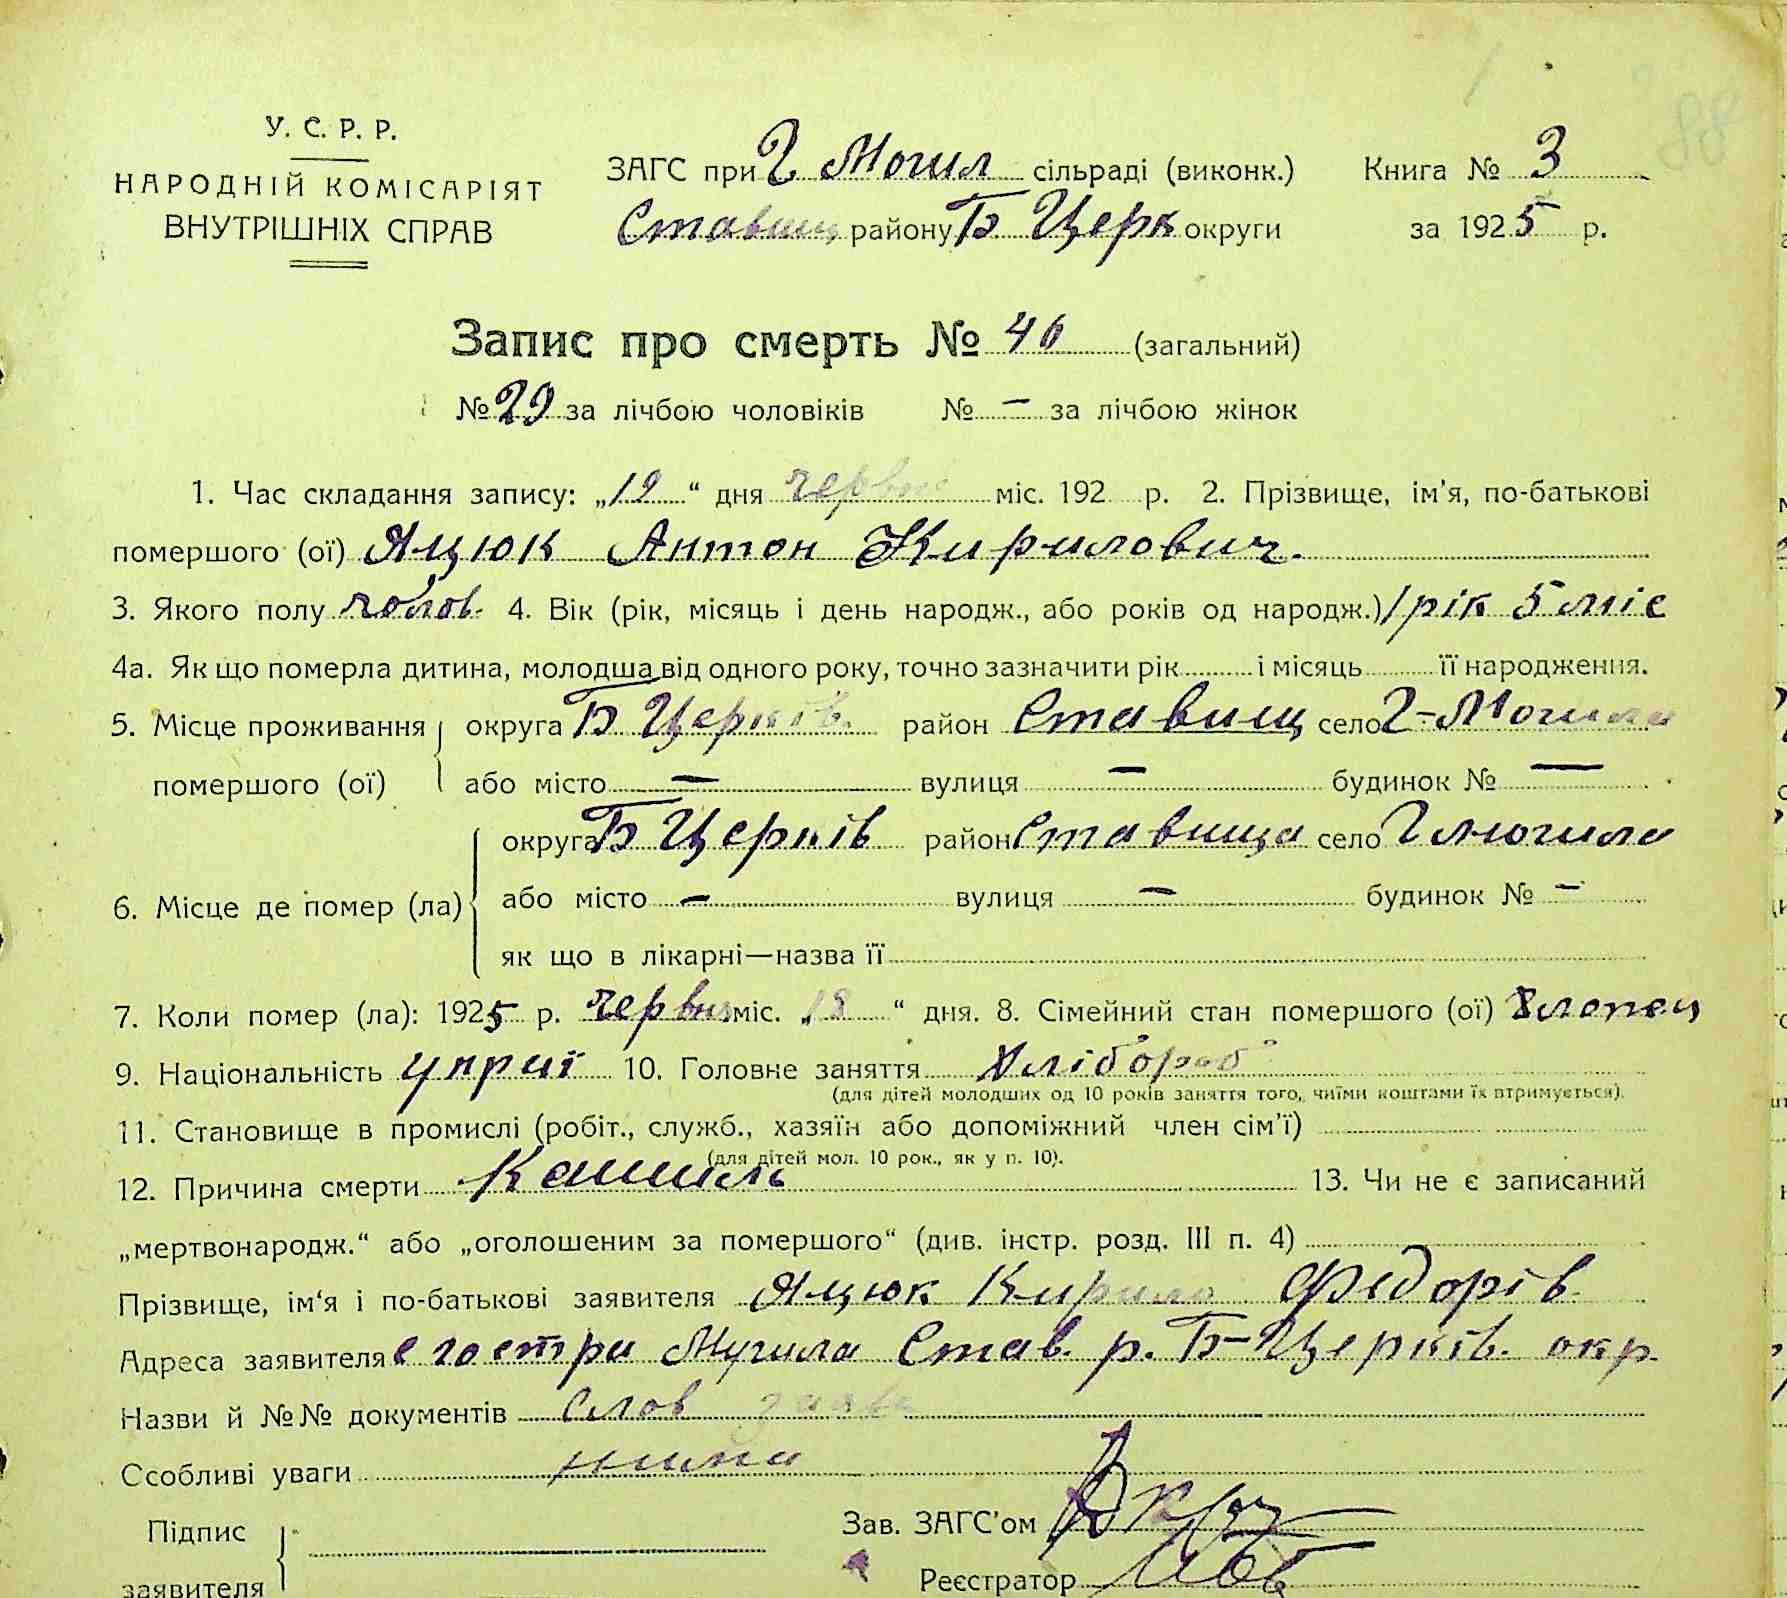 88
У. С. Р. Р.
НАРОДНІЙ КОМІСАРІЯТ
ВНУТРІШНІХ СПРАВ
ЗАГС при Г Могил сільраді (виконк.) Книга № 3
Ставищ району Б Церк округи за 1925 р.
Запис про смерть № 46 (загальний)
№ 29 за лічбою чоловіків № — за лічбою жінок
1. Час складання запису: „19“ дня червня міс. 192 р. 2. Прізвище, ім'я, по-батькові
помершого (ої) Яцюк Антон Кирилович.
3. Якого полу чолов. 4. Вік (рік, місяць і день народж., або років од народж.) 1 рік 5 міс
4а. Як що померла дитина, молодша від одного року, точно зазначити рік і місяць її народження.
5. Місце проживання округа Б Церків. район Ставищ село Г-Могила
помершого (ої) або місто — вулиця — будинок № —
округа Б Церків район Ставища село Г могила
6. Місце де помер (ла) або місто — вулиця — будинок № —
як що в лікарні—назва її
7. Коли помер (ла): 1925 р. червня міс. „18“ дня. 8. Сімейний стан помершого (ої) Хлопец
9. Національність украї 10. Головне заняття Хлібороб
(для дітей молодших од 10 років заняття того, чиїми коштами їх втримується).
11. Становище в промислі (робіт., служб., хазяїн або допоміжний член сім'ї)
(для дітей мол. 10 рок., як у п. 10).
12. Причина смерти Кашиль 13. Чи не є записаний
„мертвонародж.“ або „оголошеним за помершого“ (див. інстр. розд. III п. 4)
Прізвище, ім'я і по-батькові заявителя Яцюк Кирило Федорів.
Адреса заявителя с гостри Мугила Став. р. Б-Церків. окр.
Назви й №№ документів Слов заява
Ссобливі уваги нима
Підпис Зав. ЗАГС'ом
заявителя Реєстратор